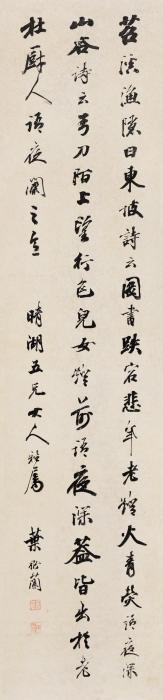 苕溪漁隱曰東坡詩云圖書跌宕悲年老燈火青熒語夜深
山谷詩云弓刀陌上望行色兒女燈前語夜深蓋皆出於老
杜厨人語夜闌之意
晴湖五兄大人雅屬
葉